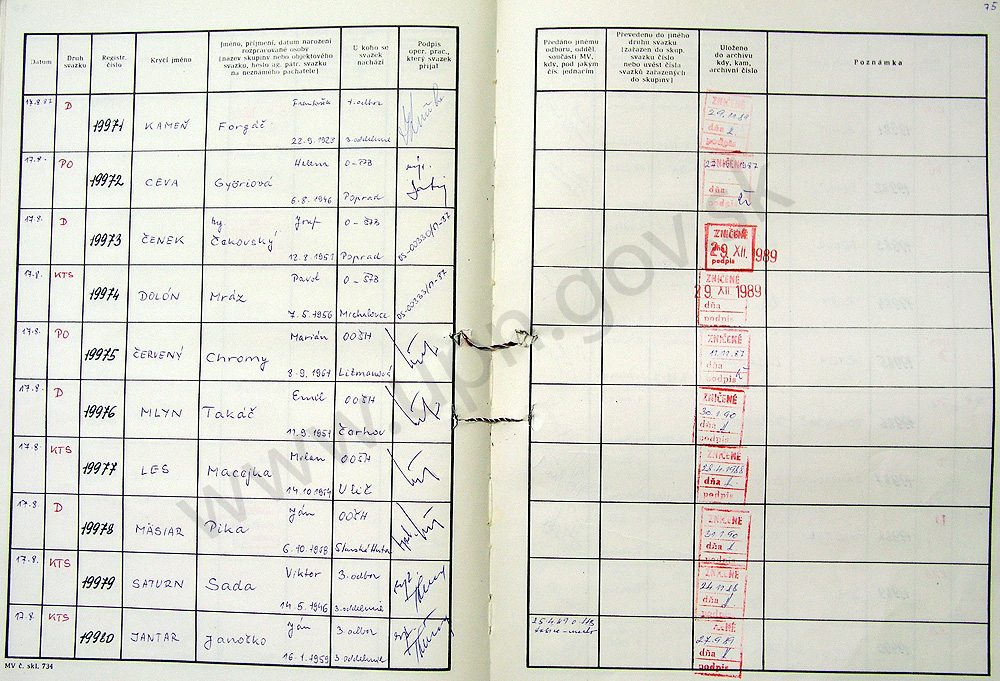 75
Datum
Druh
svazku
Registr.
číslo
Krycí jméno
Jméno, příjmení, datum narození
rozpracované osoby
(název skupiny nebo objektového
svazku, heslo ag. pátr. svazku
na neznámého pachatele)
U koho se
svazek
nachází
Podpis
oper. prac.,
který svazek
přijal
Předáno jinému
odboru, odděl.
součásti MV,
kdy, pod jakým
čís. jednacím
Převedeno do jiného
druhu svazku
(zařazen do skup.
svazku číslo
nebo uvést čísla
svazků zařazených
do skupiny)
Uloženo
do archivu
kdy, kam,
archivní číslo
Poznámka
17.8.87 D 19971 KAMEŇ Forgáč František 22.9.1923 1. odbor 3. oddelenie
ZNIČENÉ 29.11.89 dňa podpis
17.8. PO 19972 CEVA Györiová Helena 6.8.1946 O-ŠTB Poprad
ZNIČENÉ 1987 dňa podpis
17.8. D 19973 ČENEK Ing. Čakovský Jozef 12.3.1951 O-ŠTB Poprad
ZNIČENÉ 29. XII. 1989 podpis
17.8. KTS 19974 DOLÓN Mráz Pavol 7.5.1956 O-ŠTB Michalovce
ZNIČENÉ 29. XII. 1989 dňa podpis
17.8. PO 19975 ČERVENÝ Chromy Marián 8.9.1961 OOŠH Litmanová
ZNIČENÉ 11.11.87 dňa podpis
17.8. D 19976 MLYN Takáč Emil 11.9.1951 OOŠH Čarhov
ZNIČENÉ 30.1.90 dňa podpis
17.8. KTS 19977 LES Macejka Milan 14.10.1954 OOŠH Ulič
ZNIČENÉ 28.4.1988 dňa podpis
17.8. D 19978 MÄSIAR Pika Ján 6.10.1958 OOŠH Slanská Huta
ZNIČENÉ 31.1.90 dňa podpis
17.8. KTS 19979 SATURN Sada Viktor 14.5.1946 3. odbor 3. oddelenie
ZNIČENÉ 24.11.88 dňa podpis
17.8. KTS 19980 JANTAR Janočko Ján 16.1.1959 3. odbor 3. oddelenie
ZNIČENÉ 27.9.89 dňa podpis
MV č. skl. 734
www.upn.gov.sk